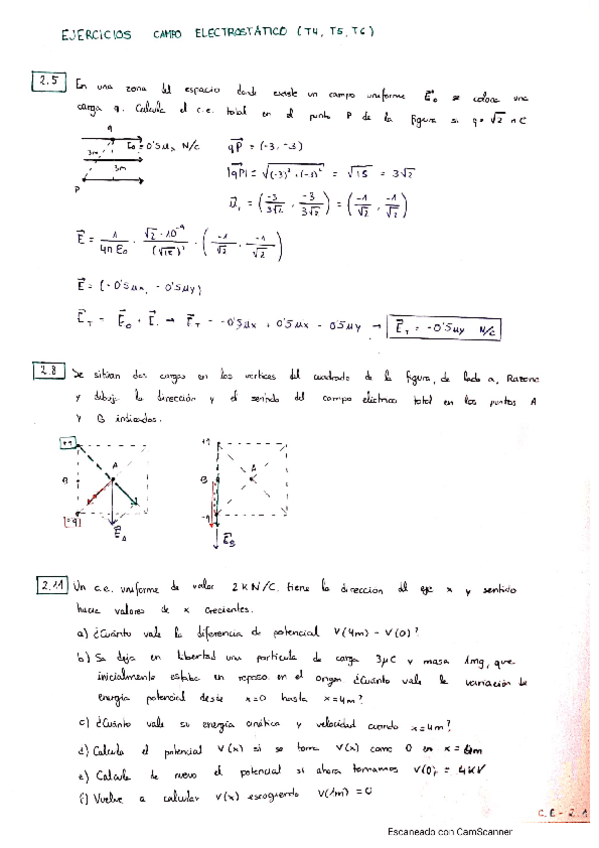 EJERCICIOS CAMPO ELECTROSTÁTICO (T4, T5, T6)
2.5 En una zona del espacio donde existe un campo uniforme E⃗₀ se coloca una
carga q. Calcula el c.e. total en el punto P de la figura si q = √2 nC
q
E₀ = 0'5 μx N/C
3m
3m
P
qP⃗ = (-3, -3)
|qP⃗| = √((-3)² + (-3)²) = √18 = 3√2
u⃗r = (-3/3√2, -3/3√2) = (-1/√2, -1/√2)
E⃗ = 1/4πE₀ · √2 · 10⁻⁹/(√18)² · (-1/√2, -1/√2)
E⃗ = (-0'5μx, -0'5μy)
E⃗T = E⃗₀ + E⃗ → E⃗T = -0'5μx + 0'5μx - 0'5μy → E⃗T = -0'5μy N/C
2.8 Se sitúan dos cargas en los vértices del cuadrado de la figura, de lado a. Razona
y dibuja la dirección y el sentido del campo eléctrico total en los puntos A
y B indicados.
+q
A
B
-q
E⃗A
+q
B
A
-q
E⃗B
2.11 Un c.e. uniforme de valor 2kN/C. tiene la dirección del eje x y sentido
hacia valores de x crecientes.
a) ¿Cuánto vale la diferencia de potencial V(4m) - V(0)?
b) Se deja en libertad una partícula de carga 3μC y masa 1mg, que
inicialmente estaba en reposo en el origen ¿Cuánto vale la variación de
energía potencial desde x=0 hasta x=4m?
c) ¿Cuánto vale su energía cinética y velocidad cuando x=4m?
d) Calcula el potencial V(x) si se toma V(x) como 0 en x =
e) Calcula de nuevo el potencial si ahora tomamos V(0) = 4kV
f) Vuelve a calcular V(x) escogiendo V(1m) = 0
C.E - 2.1
Escaneado con CamScanner